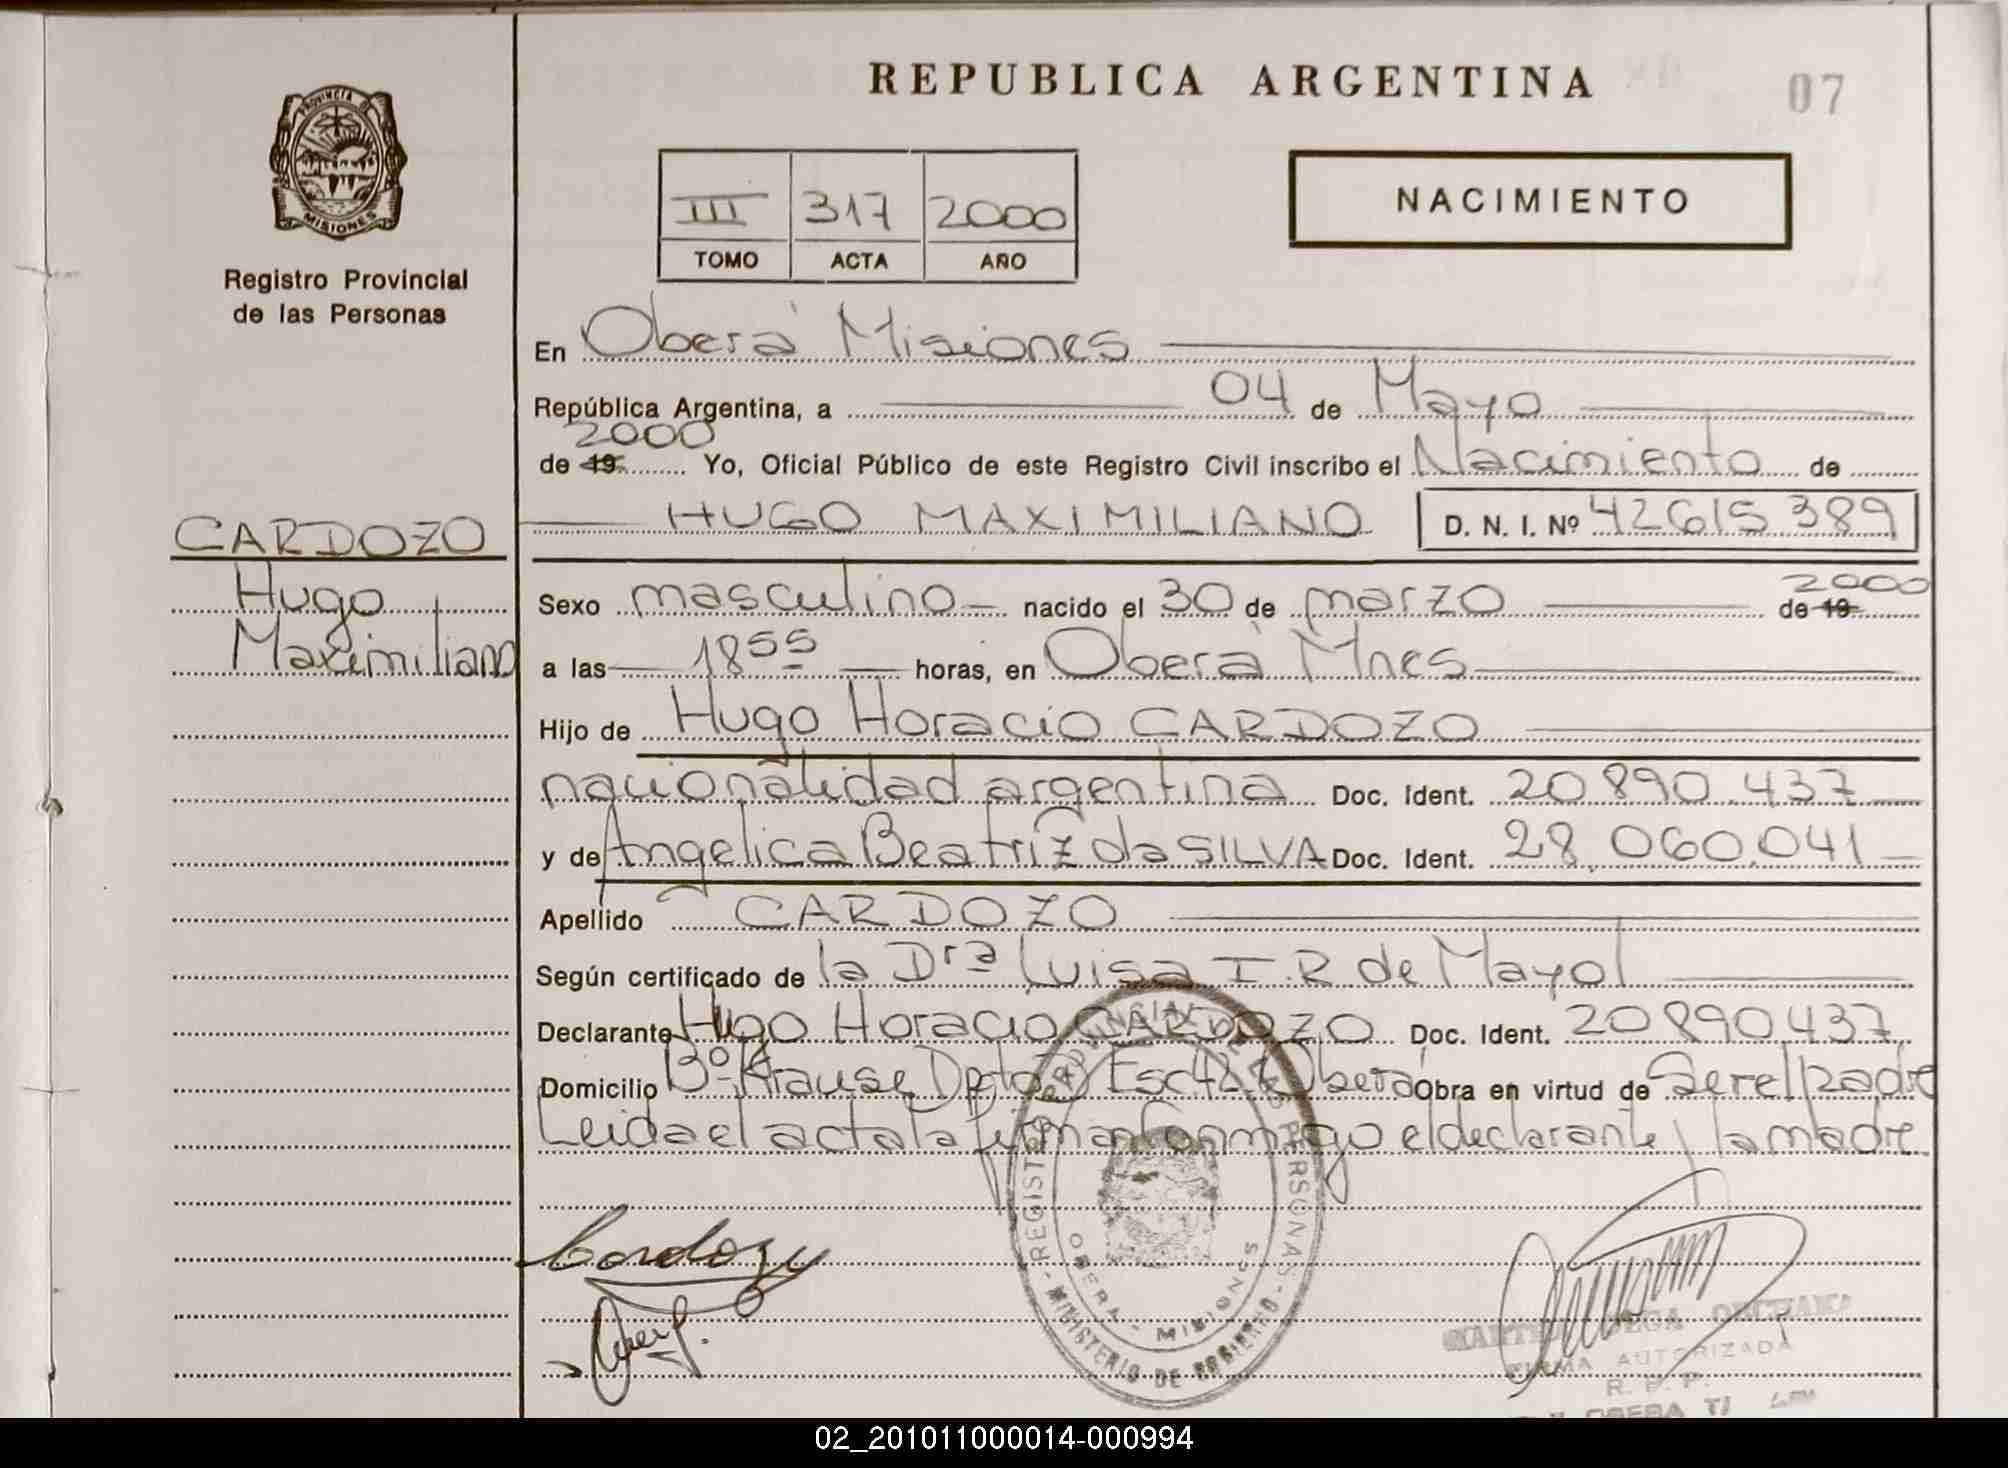 REPUBLICA ARGENTINA
07
PROVINCIA DE
MISIONES
Registro Provincial
de las Personas
III 317 2000
TOMO ACTA AÑO
NACIMIENTO
En Oberá Misiones
República Argentina, a 04 de Mayo
2000
de 19 Yo, Oficial Público de este Registro Civil inscribo el Nacimiento de
HUGO MAXIMILIANO D. N. I. Nº 42615389
CARDOZO
Hugo
Maximiliano
Sexo masculino nacido el 30 de marzo de 19 2000
a las 18 55 horas, en Oberá Mnes
Hijo de Hugo Horacio CARDOZO
nacionalidad argentina Doc. Ident. 20 890 437
y de Angelica Beatriz da SILVA Doc. Ident. 28.060.041
Apellido CARDOZO
Según certificado de la Drª Luisa I.R. de Mayol
Declarante Hugo Horacio CARDOZO Doc. Ident. 20 890 437
Domicilio Bº Krause Dpto Esc Oberá Obra en virtud de Ser el padre
Leida el acta la firman conmigo el declarante y la madre
REGISTRO PROVINCIAL DE LAS PERSONAS - MINISTERIO DE GOBIERNO -
OBERA - MISIONES
Cardozo
FIRMA AUTORIZADA
R. P. P.
OBERA
02_201011000014-000994